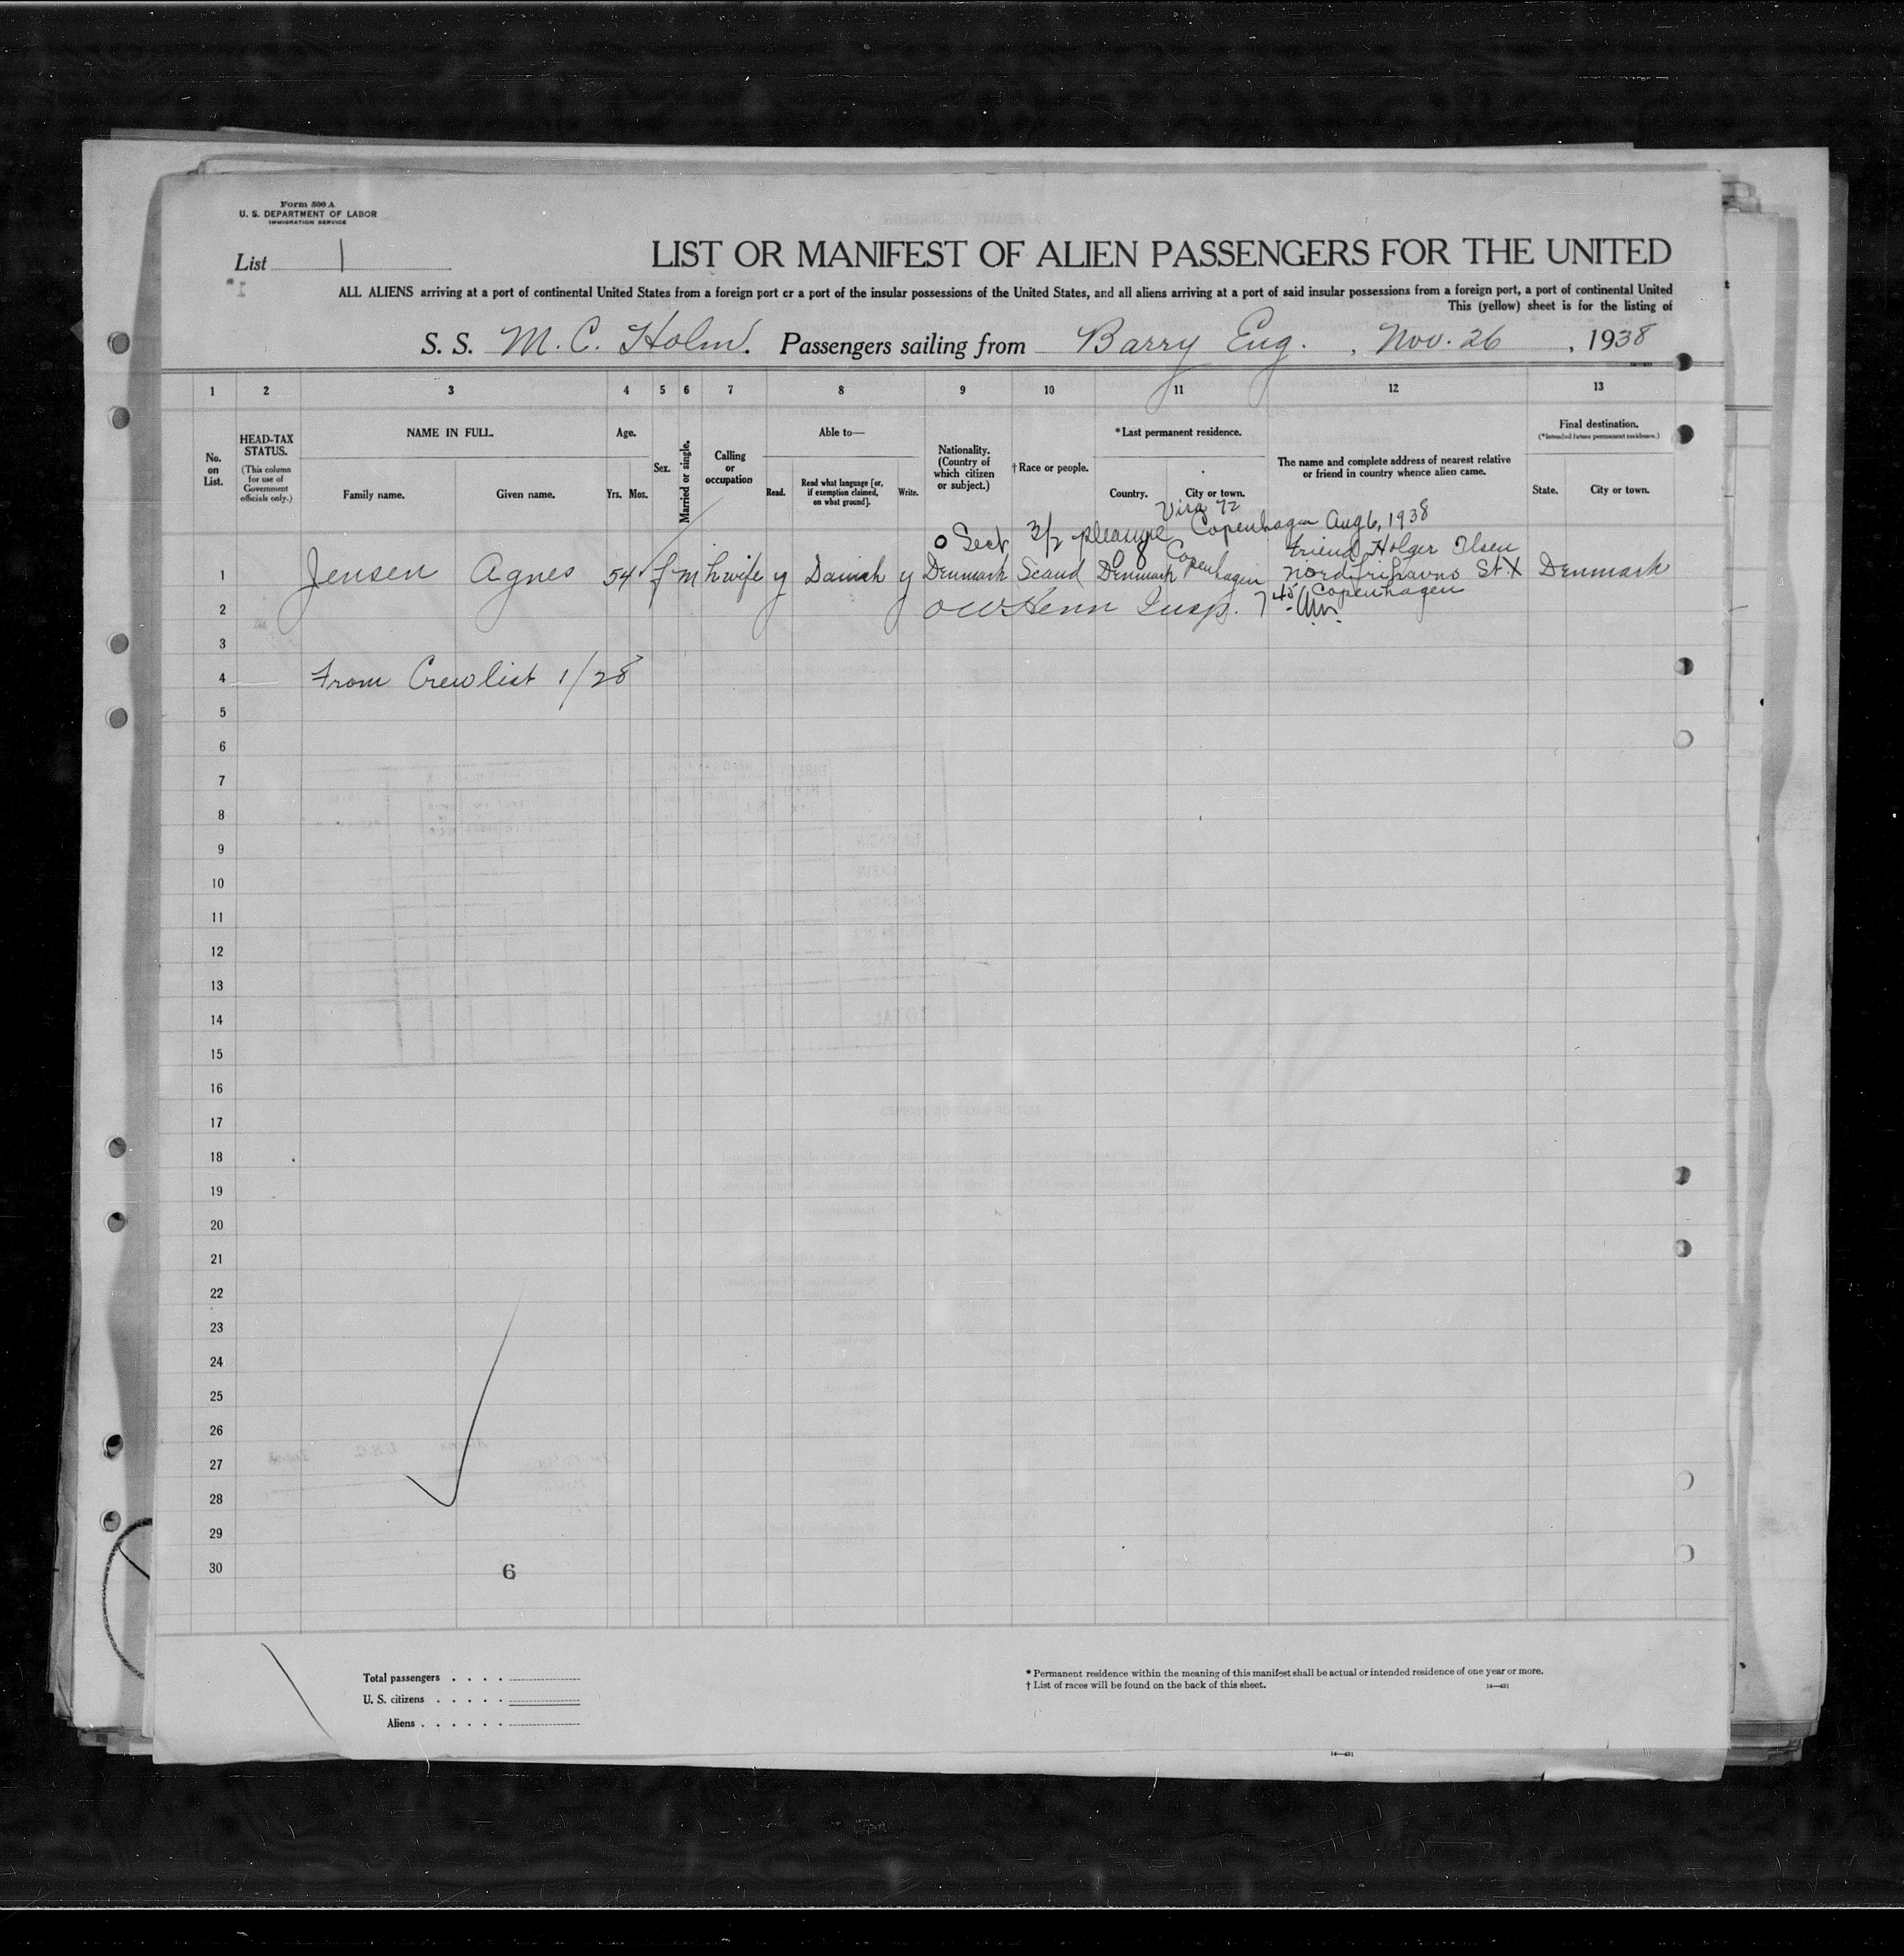 Form 500 A
U. S. DEPARTMENT OF LABOR
IMMIGRATION SERVICE
List 1
LIST OR MANIFEST OF ALIEN PASSENGERS FOR THE UNITED
ALL ALIENS arriving at a port of continental United States from a foreign port or a port of the insular possessions of the United States, and all aliens arriving at a port of said insular possessions from a foreign port, a port of continental United
This (yellow) sheet is for the listing of
S. S. M. C. Holm. Passengers sailing from Barry Eng. , Nov. 26 , 1938
1 2 3 4 5 6 7 8 9 10 11 12 13
No. on List.
HEAD-TAX STATUS.
(This column for use of Government officials only.)
NAME IN FULL.
Family name. Given name.
Age.
Yrs. Mos.
Sex.
Married or single.
Calling or occupation
Able to—
Read. Read what language [or, if exemption claimed, on what ground]. Write.
Nationality. (Country of which citizen or subject.)
† Race or people.
*Last permanent residence.
Country. City or town.
The name and complete address of nearest relative or friend in country whence alien came.
Final destination.
(*Intended future permanent residence.)
State. City or town.
Visa 72
Sect 3/2 pleasure Copenhagen Aug 6, 1938
friend Holger Olsen
1 Jensen Agnes 54 f m h wife y Danish y Denmark Scand Denmark Copenhagen Nordfrihavns St. X Denmark
Copenhagen
2 Insp. 7 45
3
4 From Crew list 1/28
5
6
7
8
9
10
11
12
13
14
15
16
17
18
19
20
21
22
23
24
25
26
27
28
29
30
6
Total passengers . . . .
U. S. citizens . . . . .
Aliens . . . . . .
* Permanent residence within the meaning of this manifest shall be actual or intended residence of one year or more.
† List of races will be found on the back of this sheet.
14—431
14—431